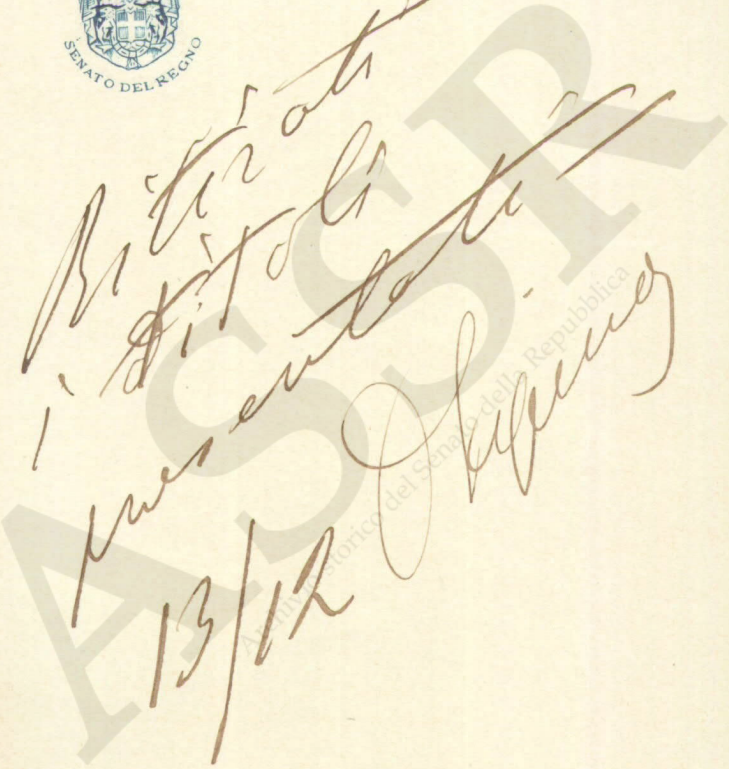 SENATO DEL REGNO
Ritirati
i titoli
presentati
13/12
ASSR
Archivio storico del Senato della Repubblica